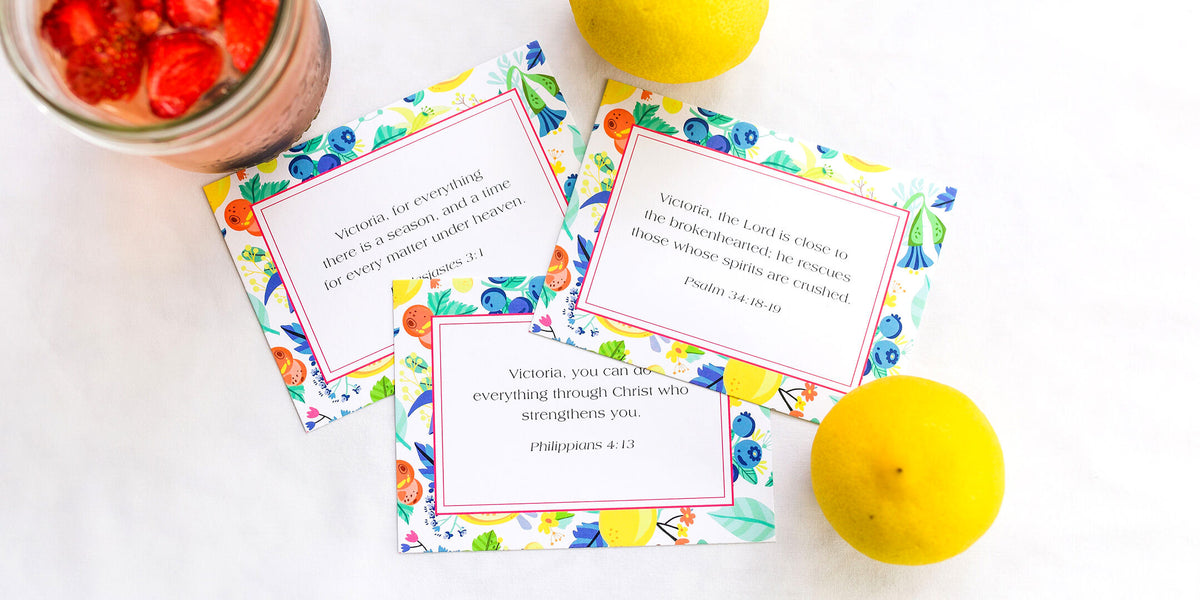 Victoria, for everything
there is a season, and a time
for every matter under heaven.
3:1
Victoria, the Lord is close to
the brokenhearted; he rescues
those whose spirits are crushed.
Psalm 34:18-19
Victoria, you can do
everything through Christ who
strengthens you.
Philippians 4:13